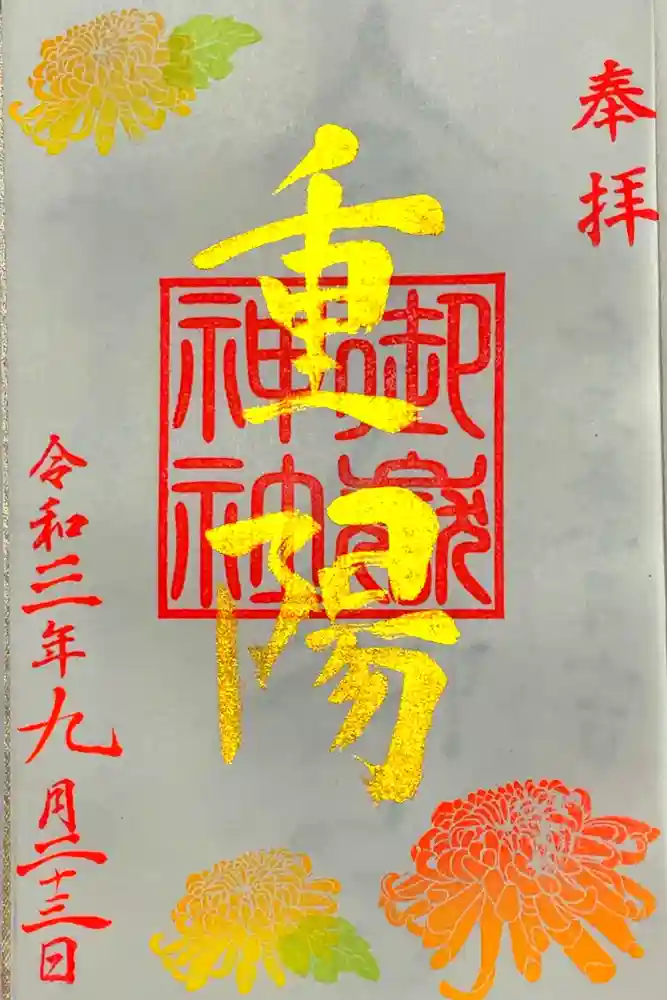 奉拝
重陽
御嶽
神社
令和三年九月二十三日